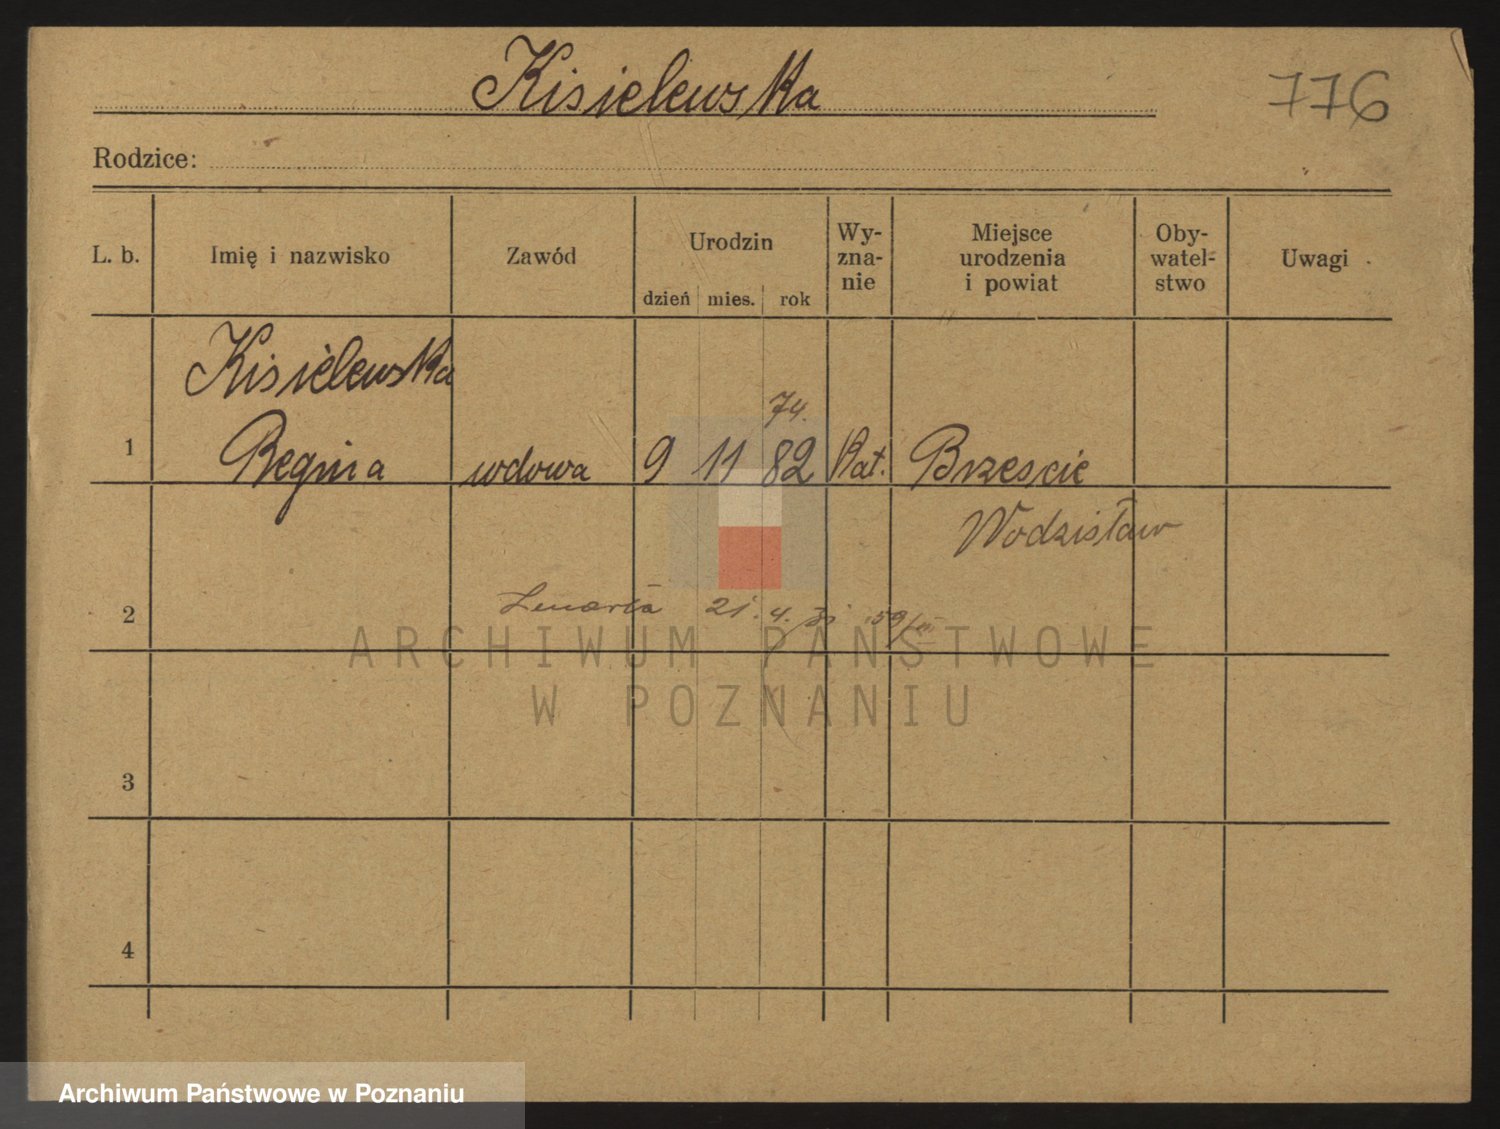 Kisielewska
776
Rodzice:
L. b.
Imię i nazwisko
Zawód
Urodzin
dzień mies. rok
Wy-
zna-
nie
Miejsce
urodzenia
i powiat
Oby-
watel-
stwo
Uwagi
Kisielewska
74.
1 Regina wdowa 9 11 82 Kat. Brzescie
Wodzisław
2
zmarła 21. 4. 31 59/III
ARCHIWUM PAŃSTWOWE
W POZNANIU
3
4
Archiwum Państwowe w Poznaniu